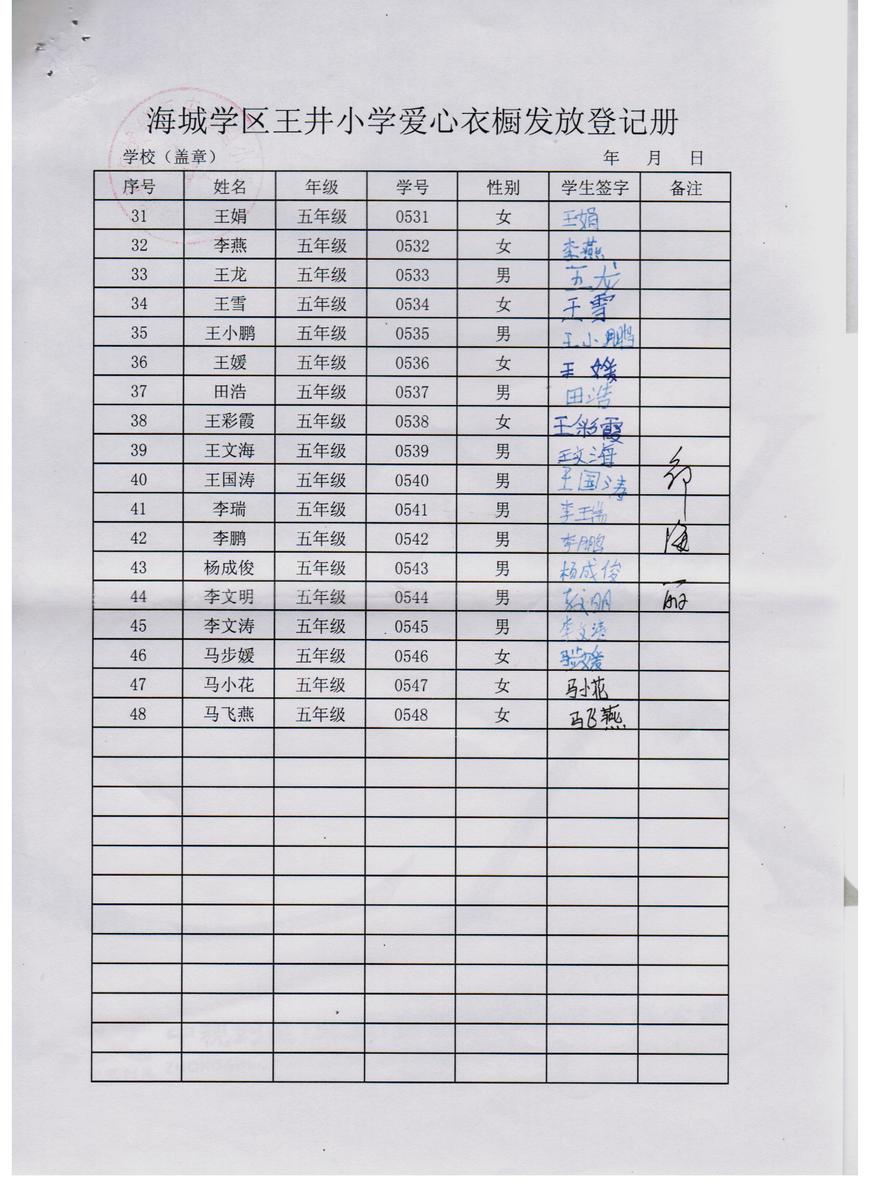 海城学区王井小学爱心衣橱发放登记册
学校（盖章） 年 月 日
序号 姓名 年级 学号 性别 学生签字 备注
31 王娟 五年级 0531 女 王娟
32 李燕 五年级 0532 女 李燕
33 王龙 五年级 0533 男 王龙
34 王雪 五年级 0534 女 王雪
35 王小鹏 五年级 0535 男 王小鹏
36 王媛 五年级 0536 女 王媛
37 田浩 五年级 0537 男 田浩
38 王彩霞 五年级 0538 女 王彩霞
39 王文海 五年级 0539 男 王文海
40 王国涛 五年级 0540 男 王国涛
41 李瑞 五年级 0541 男 李王瑞
42 李鹏 五年级 0542 男 李鹏
43 杨成俊 五年级 0543 男 杨成俊
44 李文明 五年级 0544 男 李文明
45 李文涛 五年级 0545 男 李文涛
46 马步媛 五年级 0546 女 马步媛
47 马小花 五年级 0547 女 马小花
48 马飞燕 五年级 0548 女 马飞燕
海
丽